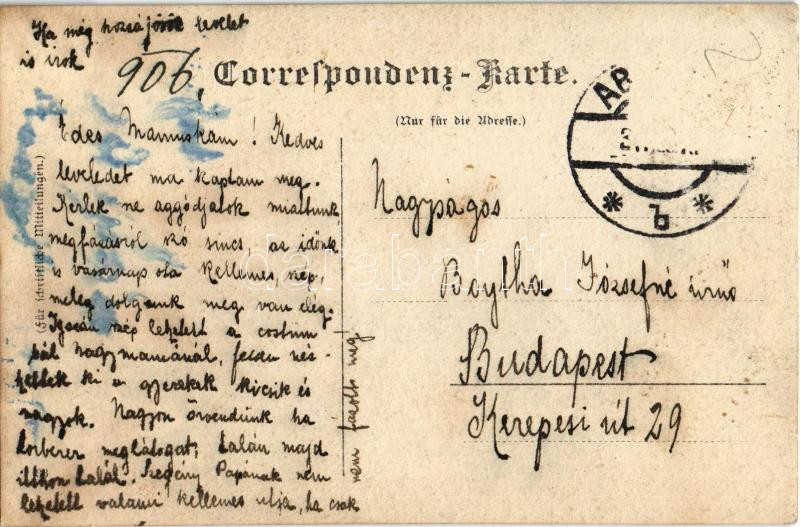 Ha még hozzájövök levelet
is irok
906,
Correspondenz-Karte.
(Nur für die Adresse.)
(Für schriftliche Mitteilungen.)
Édes Mamuskám! Kedves
leveledet ma kaptam meg.
Kérlek ne aggódjatok miattunk,
megfázásról szó sincs, az időnk
is vasárnap óta kellemes, szép,
meleg dolgunk meg van elég.
Igazán szép lehetett a costum
bál nagymamánál, fessen néz-
hettek ki a gyerekek kicsik és
nagyok. Nagyon örvendünk ha
meglátogat, talán majd
itthon talál. Szegény Papának nem
lehetett valami kellemes utja, ha csak
nem fázott meg
Nagyságos
Boytha Józsefné úrnő
Budapest
Kerepesi út 29
AR
b
darabanth